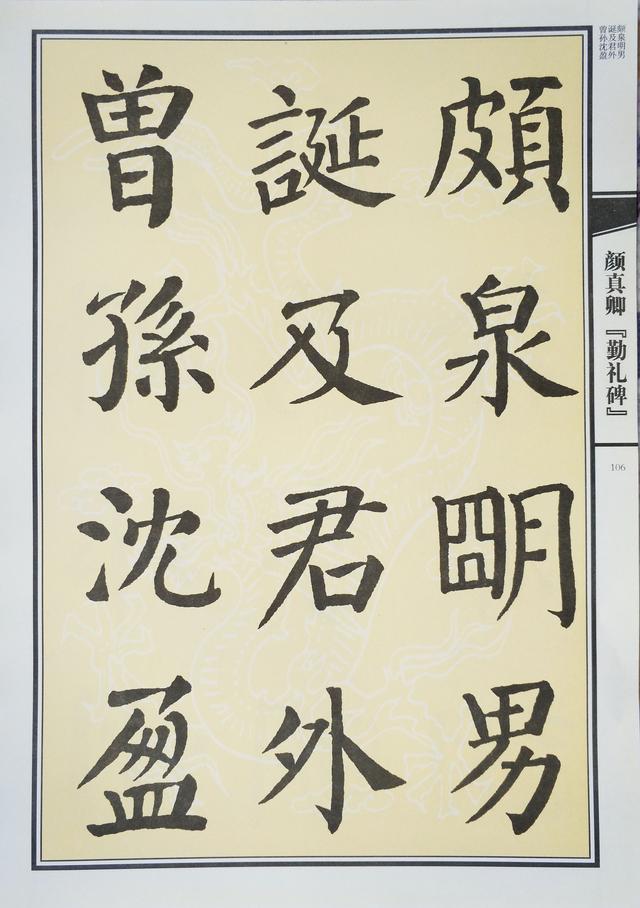 頗泉明男
誕及君外
曾孫沈盈
颇泉明男
诞及君外
曾孙沈盈
颜真卿『勤礼碑』
106